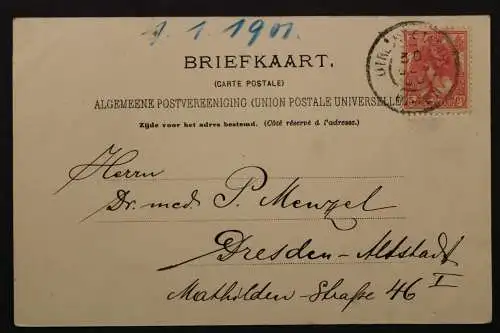 1.1.1901.
BRIEFKAART.
(CARTE POSTALE)
ALGEMEENE POSTVEREENIGING (UNION POSTALE UNIVERSELLE)
Zijde voor het adres bestemd. (Côté réservé à l'adresse.)
Herrn
Dr. med. P. Menzel
Dresden-Altstadt
I
Mathilden-Straße 46